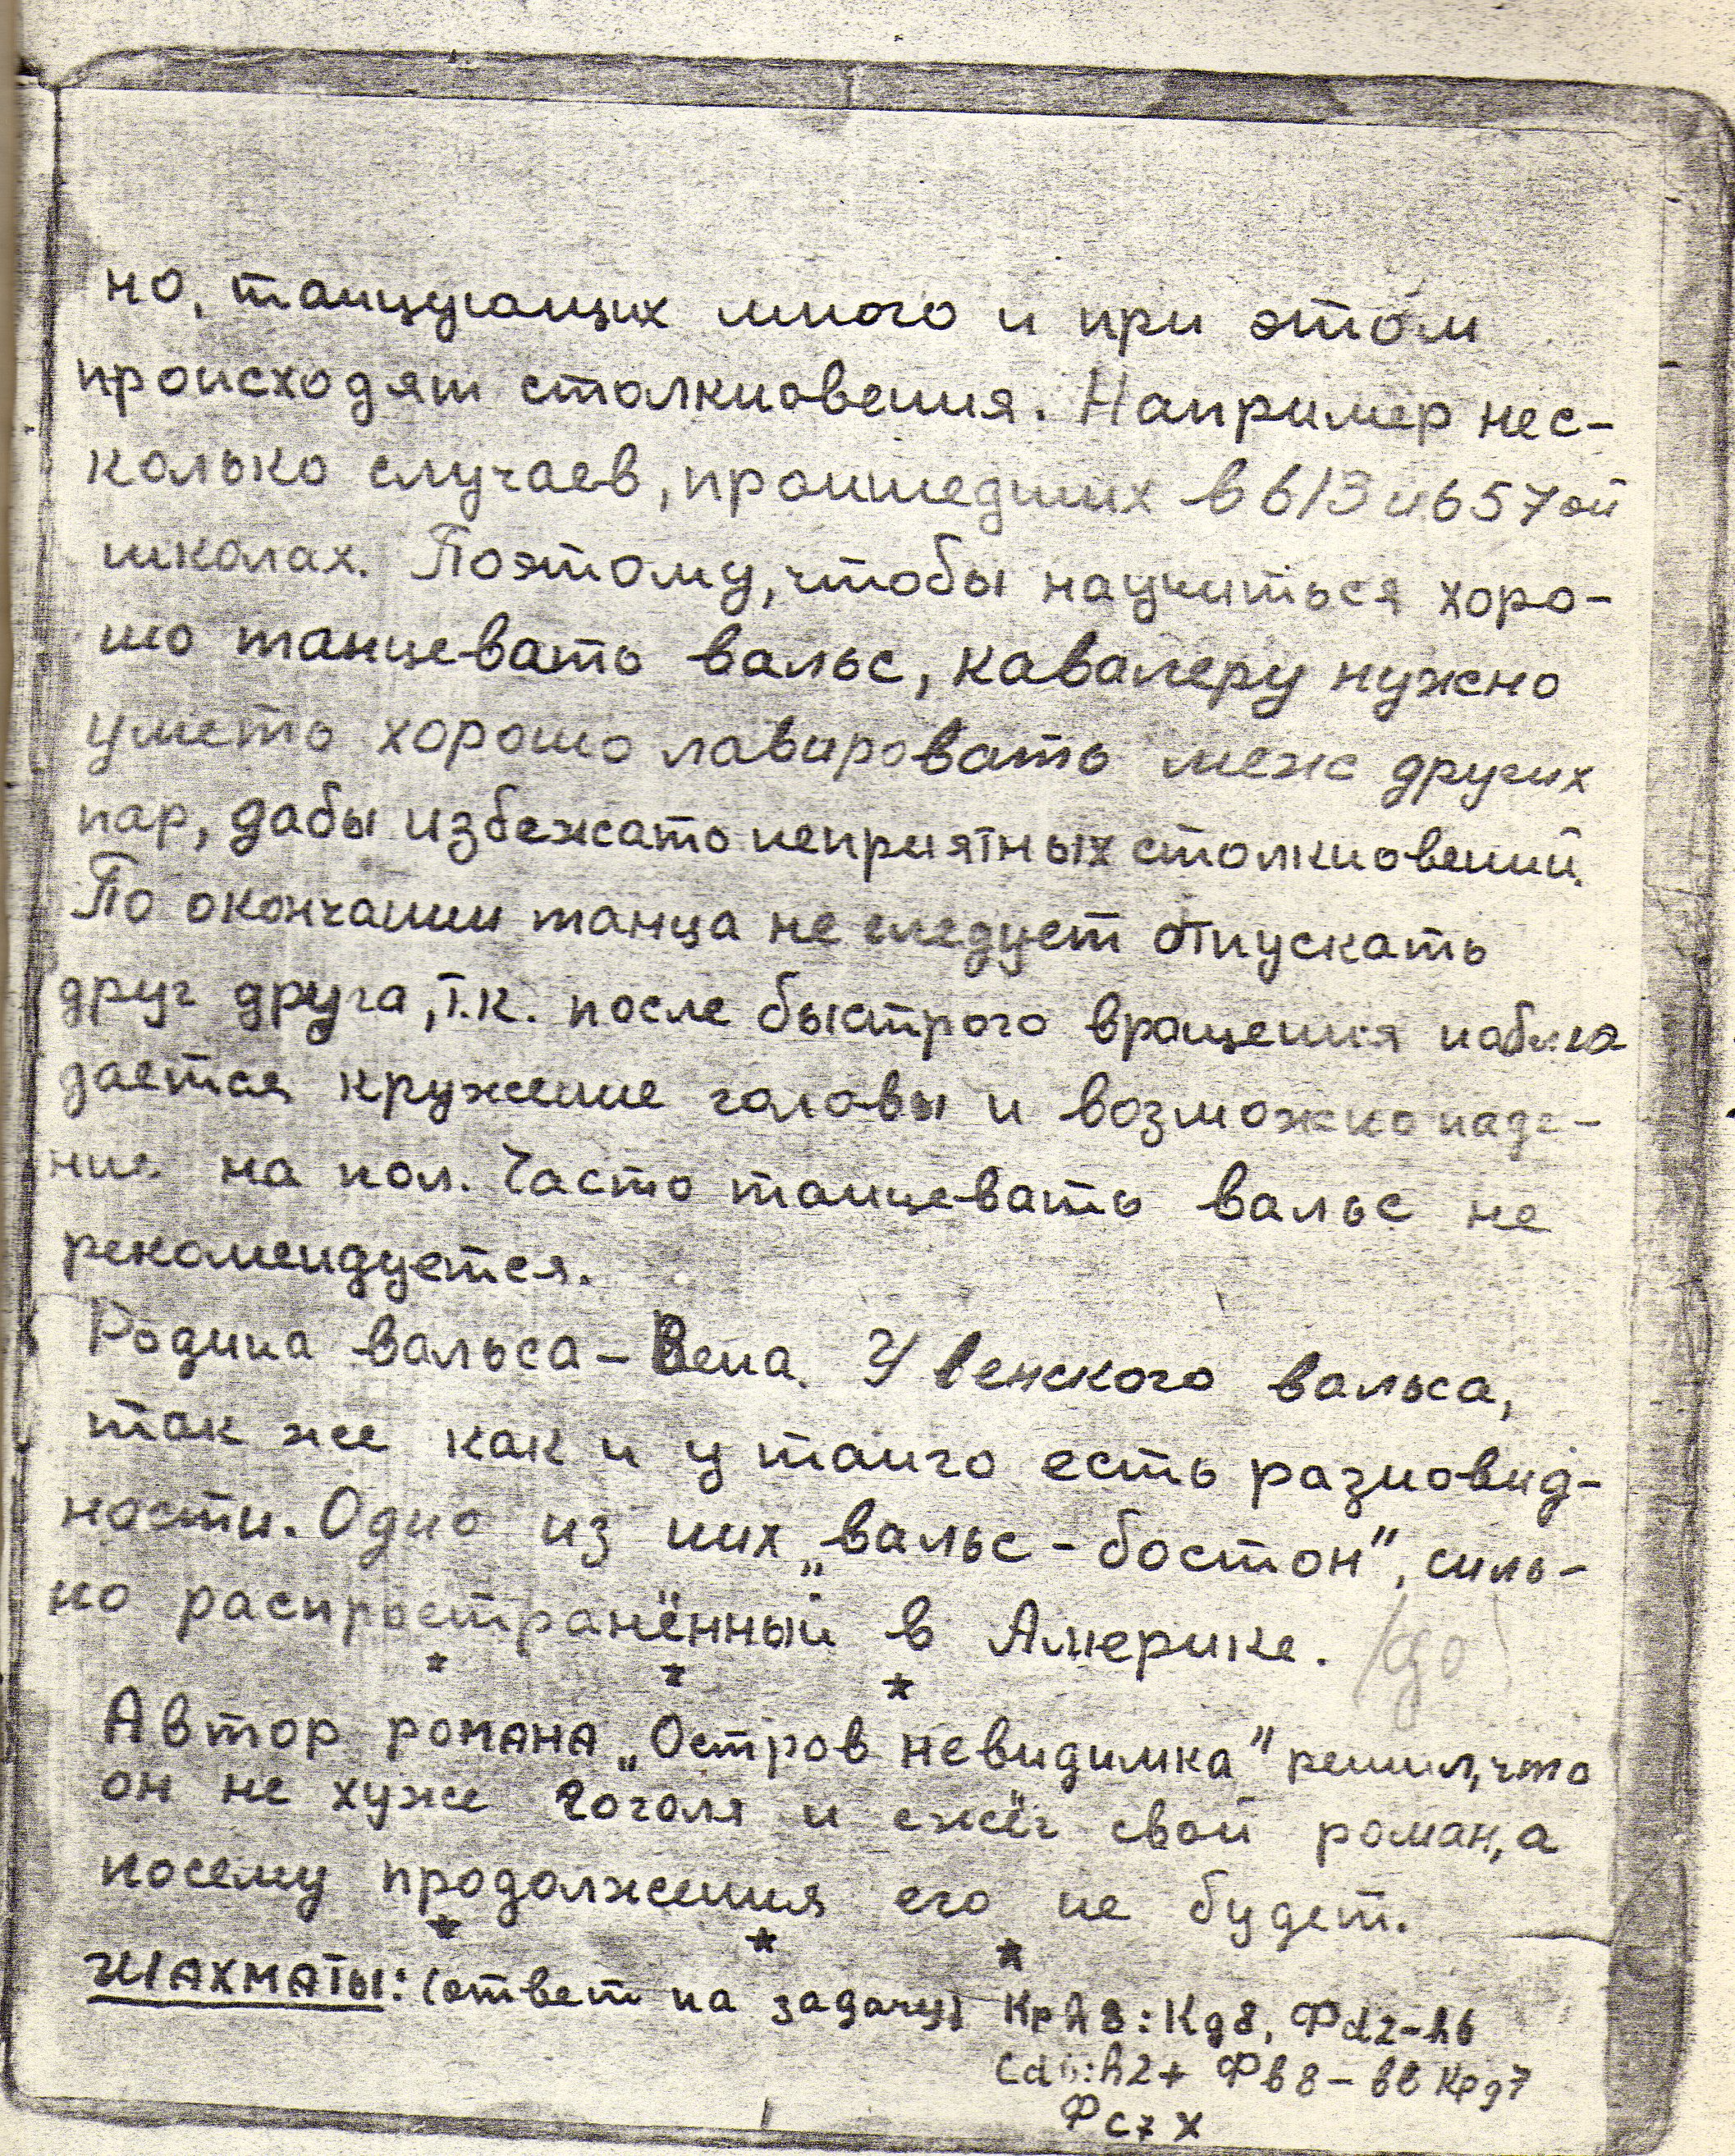 но, танцующих много и при этом
происходят столкновения. Например нес-
колько случаев, проишедших в 613 и 657ой
школах. Поэтому, чтобы научиться хоро-
шо танцевать вальс, кавалеру нужно
уметь хорошо лавировать меж других
пар, дабы избежать неприятных столкновений.
По окончании танца не следует отпускать
друг друга, т.к. после быстрого вращения наблю
дается кружение головы и возможно паде-
ние на пол. Часто танцевать вальс не
рекомендуется.
Родина вальса - Вена. У венского вальса,
так же как и у танго есть разновид-
ности. Одно из них „вальс - бостон", силь-
но распространённый в Америке.
* * *
Автор романа „Остров невидимка" решил, что
он не хуже Гоголя и сжёг свой роман, а
посему продолжения его не будет.
* * *
ШАХМАТЫ: (ответ на задачу) Крh8:Kg8, Фd2-h6
:h2+ Фb8- Крg7
Фc7 X